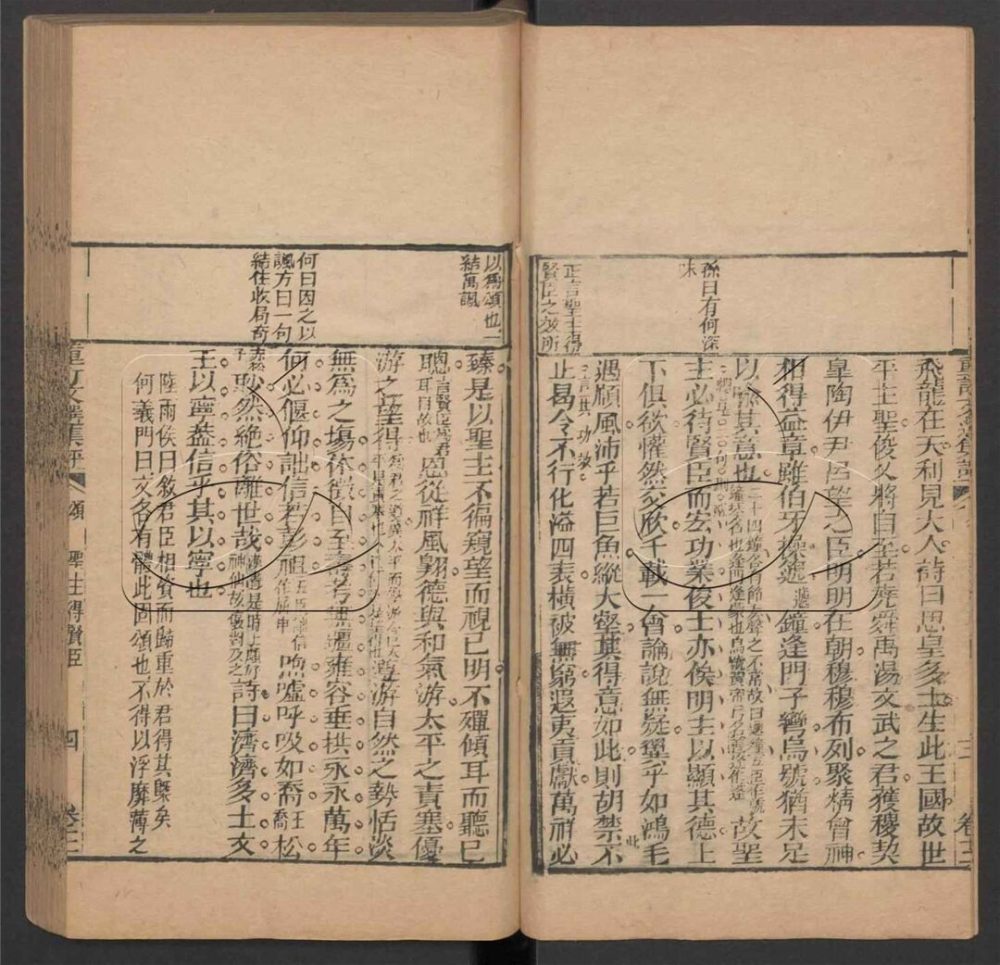 孫曰有何深
味
正言聖主得
賢臣之效所
飛龍在天利見大人詩曰思皇多士生此王國故世
平主聖俊乂將自至若堯舜禹湯文武之君獲稷契
皐陶伊尹呂望之臣明明在朝穆穆布列聚精會神
相得益章雖伯牙操遞鐘逢門子彎烏號猶未足
以喻其意也故聖
主必待賢臣而宏功業俊士亦俟明主以顯其德上
下俱欲懽然交欣千載一會論說無疑翼乎如鴻毛
遇順風沛乎若巨魚縱大壑其得意如此則胡禁不
止曷令不行化溢四表橫被無窮遐夷貢獻萬祥必
三
以為頌也一
結萬諷
何曰因之以
諷方曰一句
結住收局奇
臻是以聖主不徧窺望而視已明不殫傾耳而聽已
聰恩從祥風翱德與和氣游太平之責塞優
游之望得游自然之勢恬淡
無為之場休徵自至壽考無疆雍容垂拱永永萬年
何必偃仰詘信若彭祖呴噓呼吸如喬松
眇然絕俗離世哉詩曰濟濟多士文
王以寧蓋信乎其以寧也
陸雨侯曰敘君臣相資而歸重於君得其槩矣
何義門曰文各有體此固頌也不得以浮靡薄之
頌 聖主得賢臣
四